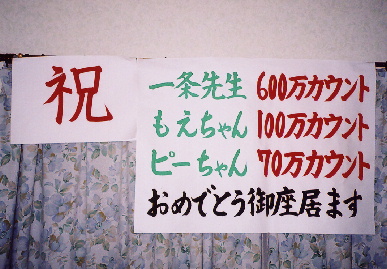 祝
一条先生 600万カウント
もえちゃん 100万カウント
ピーちゃん 70万カウント
おめでとう御座居ます